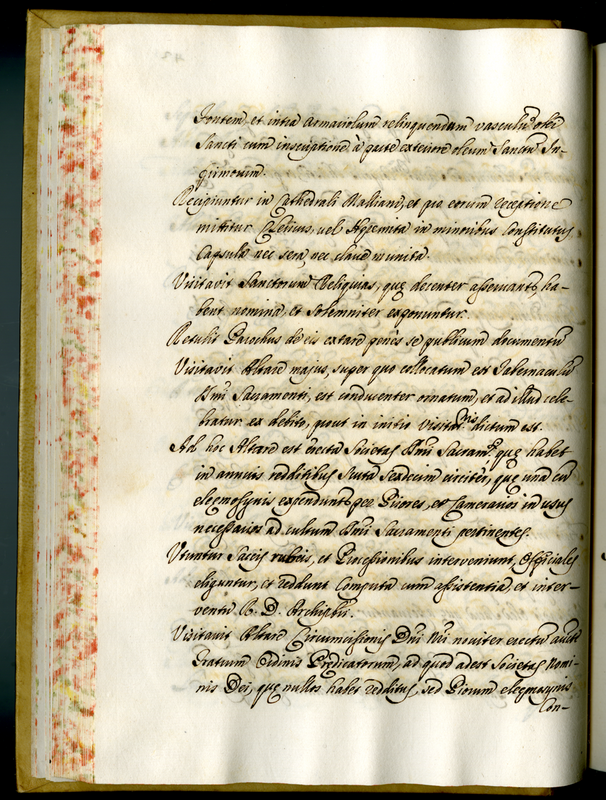 Fontem, et intra armariolum relinquendum vasculũ olei
Sancti cum inscriptione à parte exteriore oleum Sanctũ In-
firmorum.
Recipiuntur in Cathedrali Nalliani, et pro eorum receptione
mittitur Clericus, vel Heremita in minoribus constitutus
Capsula nec sera, nec claud munita.
Visitavit Sanctorum Reliquias, quę decenter asservant, ha-
bent nomina, et solemniter exponuntur.
Retulit Parochus de eis extare penes se publicum documentũ
Visitavit Altare majus, super quo collocatum est Tabernaculũ
Smi Sacramenti, est condecenter ornatum, et ad illud cele-
bratur ex debito, prout in initio visitnis dictum est.
Ad hoc Altare est erecta Societas Smi Sacramti quę habet
in annuis redditibus scuta sexdecim circiter, quę una cũ
elegmosynis expendunt per Priores, et Camerarios in usus
necessarios ad cultum Smi Sacramenti pertinentes.
Utuntur Saccis rubeis, et Processionibus interveniunt, Officiales
eliguntur, et reddunt Computa cum assistentia, et inter-
ventu R. D. Archipbri.
Visitavit Altare Circumcissionis Dni Nri noviter erectũ auctte
Fratrum Ordinis Prędicatorum, ad quod adest Societas Nomi-
nis Dei, quę nullos habet redditus, sed Piorum elegmosynis
Con-